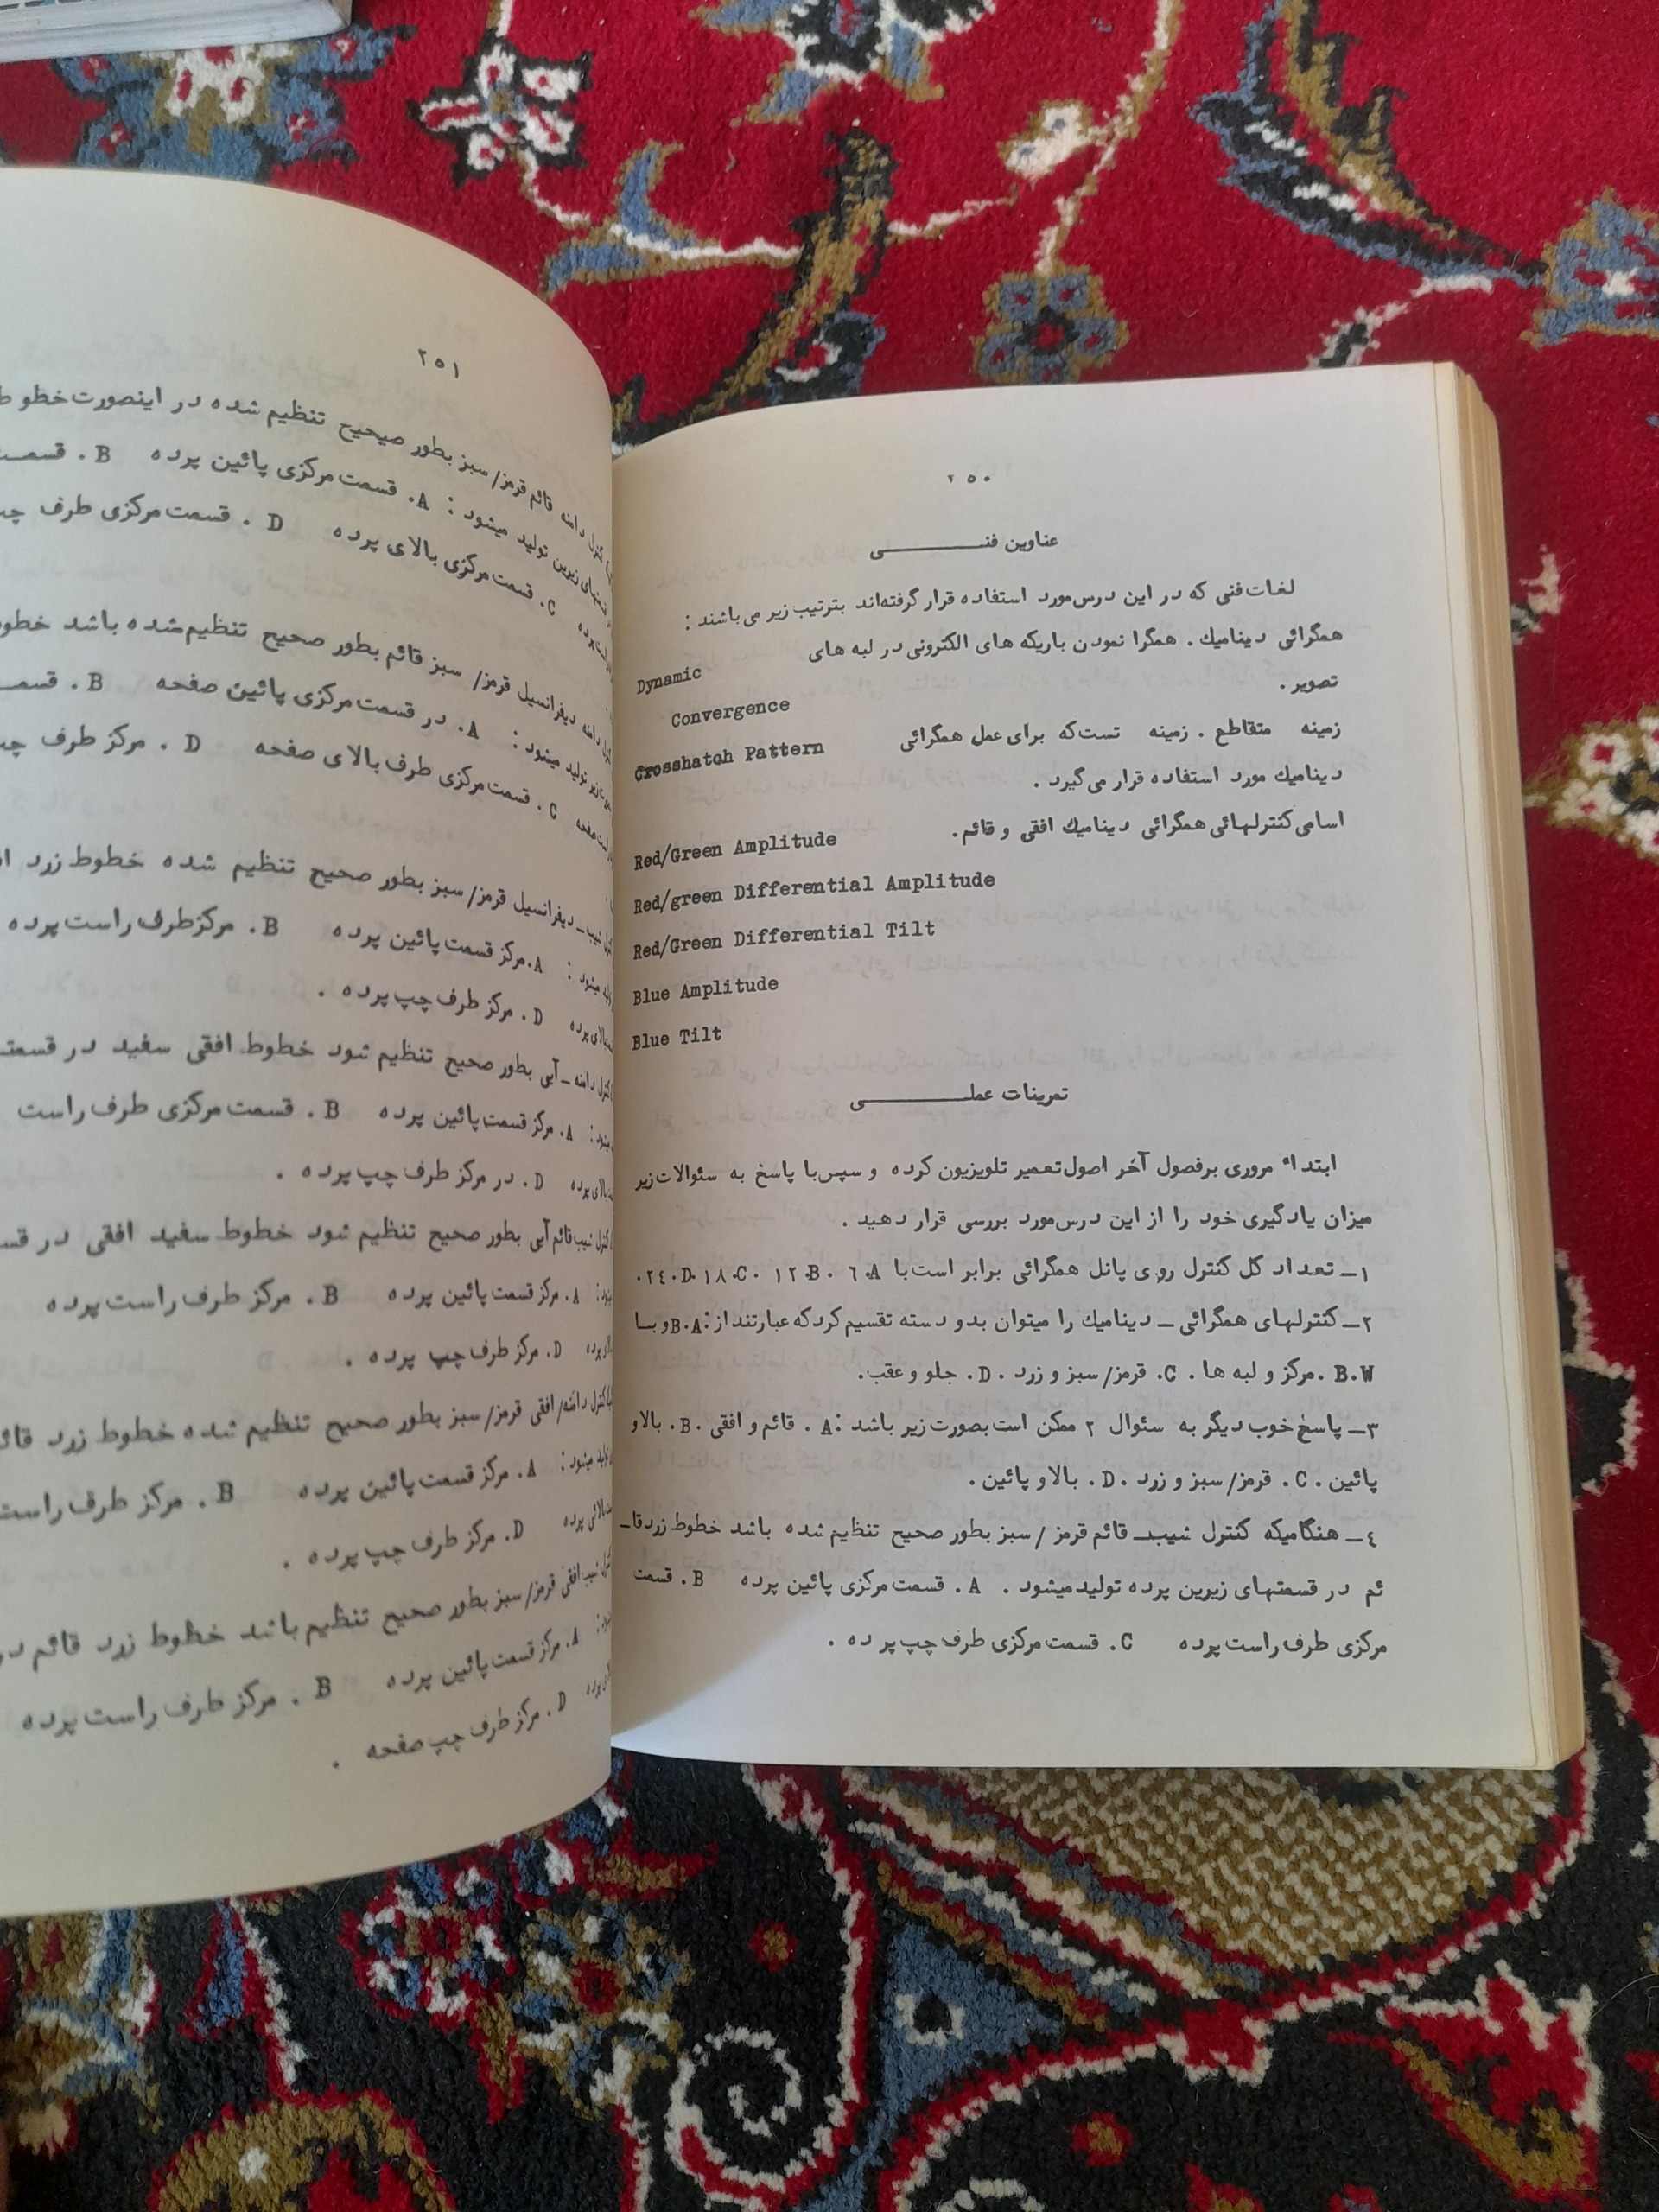 ۲۵۰
عناوین فنـــــــی
لغات فنی که در این درس مورد استفاده قرار گرفته‌اند بترتیب زیر می‌باشند :
همگرائی دینامیك . همگرا نمودن باریکه های الکترونی در لبه های Dynamic
تصویر . Convergence
زمینه متقاطع . زمینه تست که برای عمل همگرائی Crosshatch Pattern
دینامیك مورد استفاده قرار می‌گیرد .
اسامی کنترلهائی همگرائی دینامیك افقی و قائم . Red/Green Amplitude
Red/green Differential Amplitude
Red/Green Differential Tilt
Blue Amplitude
Blue Tilt
تمرینات عملــــــــی
ابتداء مروری برفصول آخر اصول تعمیر تلویزیون کرده و سپس با پاسخ به سئوالات زیر
میزان یادگیری خود را از این درس مورد بررسی قرار دهید .
۱ــ تعداد کل کنترل روی پانل همگرائی برابر است با A.۶ .B.۱۲ .C.۱۸ .D.۲٤.
۲ــ کنترلهای همگرائی ــ دینامیك را میتوان بدو دسته تقسیم کرد که عبارتند از : B.A و یــا
B.W .مرکز و لبه ها . C. قرمز/ سبز و زرد . D. جلو و عقب.
۳ــ پاسخ خوب دیگر به سئوال ۲ ممکن است بصورت زیر باشد : A . قائم و افقی . B. بالا و
پائین . C. قرمز/ سبز و زرد . D. بالا و پائین .
٤ــ هنگامیکه کنترل شیبــ قائم قرمز / سبز بطور صحیح تنظیم شده باشد خطوط زرد قا ــ
ئم در قسمتهای زیرین پرده تولید میشود . A . قسمت مرکزی پائین پرده B . قسمت
مرکزی طرف راست پرده C. قسمت مرکزی طرف چپ پرده .
۲۵۱
کنترل دامنه قائم قرمز/ سبز بطور صیحیح تنظیم شده در اینصورت خطوط
زیرین تولید میشود : A. قسمت مرکزی پائین پرده B .
C. قسمت مرکزی بالای پرده D . قسمت مرکزی طرف
دامنه دیفرانسیل قرمز/ سبز قائم بطور صحیح تنظیم شده باشد خطوط
تولید میشود : A. در قسمت مرکزی پائین صفحه B .
C . قسمت مرکزی طرف بالای صفحه D . مرکز طرف
شیب ــ دیفرانسیل قرمز/ سبز بطور صحیح تنظیم شده خطوط زرد
میشود : A.مرکز قسمت پائین پرده B. مرکز طرف راست پرده
بالای پرده D. مرکز طرف چپ پرده .
کنترل دامنه ــ آبی بطور صحیح تنظیم شود خطوط افقی سفید در
میشود : A. مرکز قسمت پائین پرده B . قسمت مرکزی طرف راست
بالای پرده D. در مرکز طرف چپ پرده .
کنترل شیب قائم آبی بطور صحیح تنظیم شود خطوط سفید افقی در
A. مرکز قسمت پائین پرده B . مرکز طرف راست پرده
پرده D. مرکز طرف چپ پرده .
کنترل دامنه/ افقی قرمز/ سبز بطور صحیح تنظیم شده خطوط زرد
تولید میشود : A. مرکز قسمت پائین پرده B . مرکز طرف راست
بالائی پرده D. مرکز طرف چپ پرده .
شیب افقی قرمز/ سبز بطور صحیح تنظیم باشد خطوط زرد قائم در
A. مرکز قسمت پائین پرده B . مرکز طرف راست پرده
پرده D . مرکز طرف چپ صفحه .